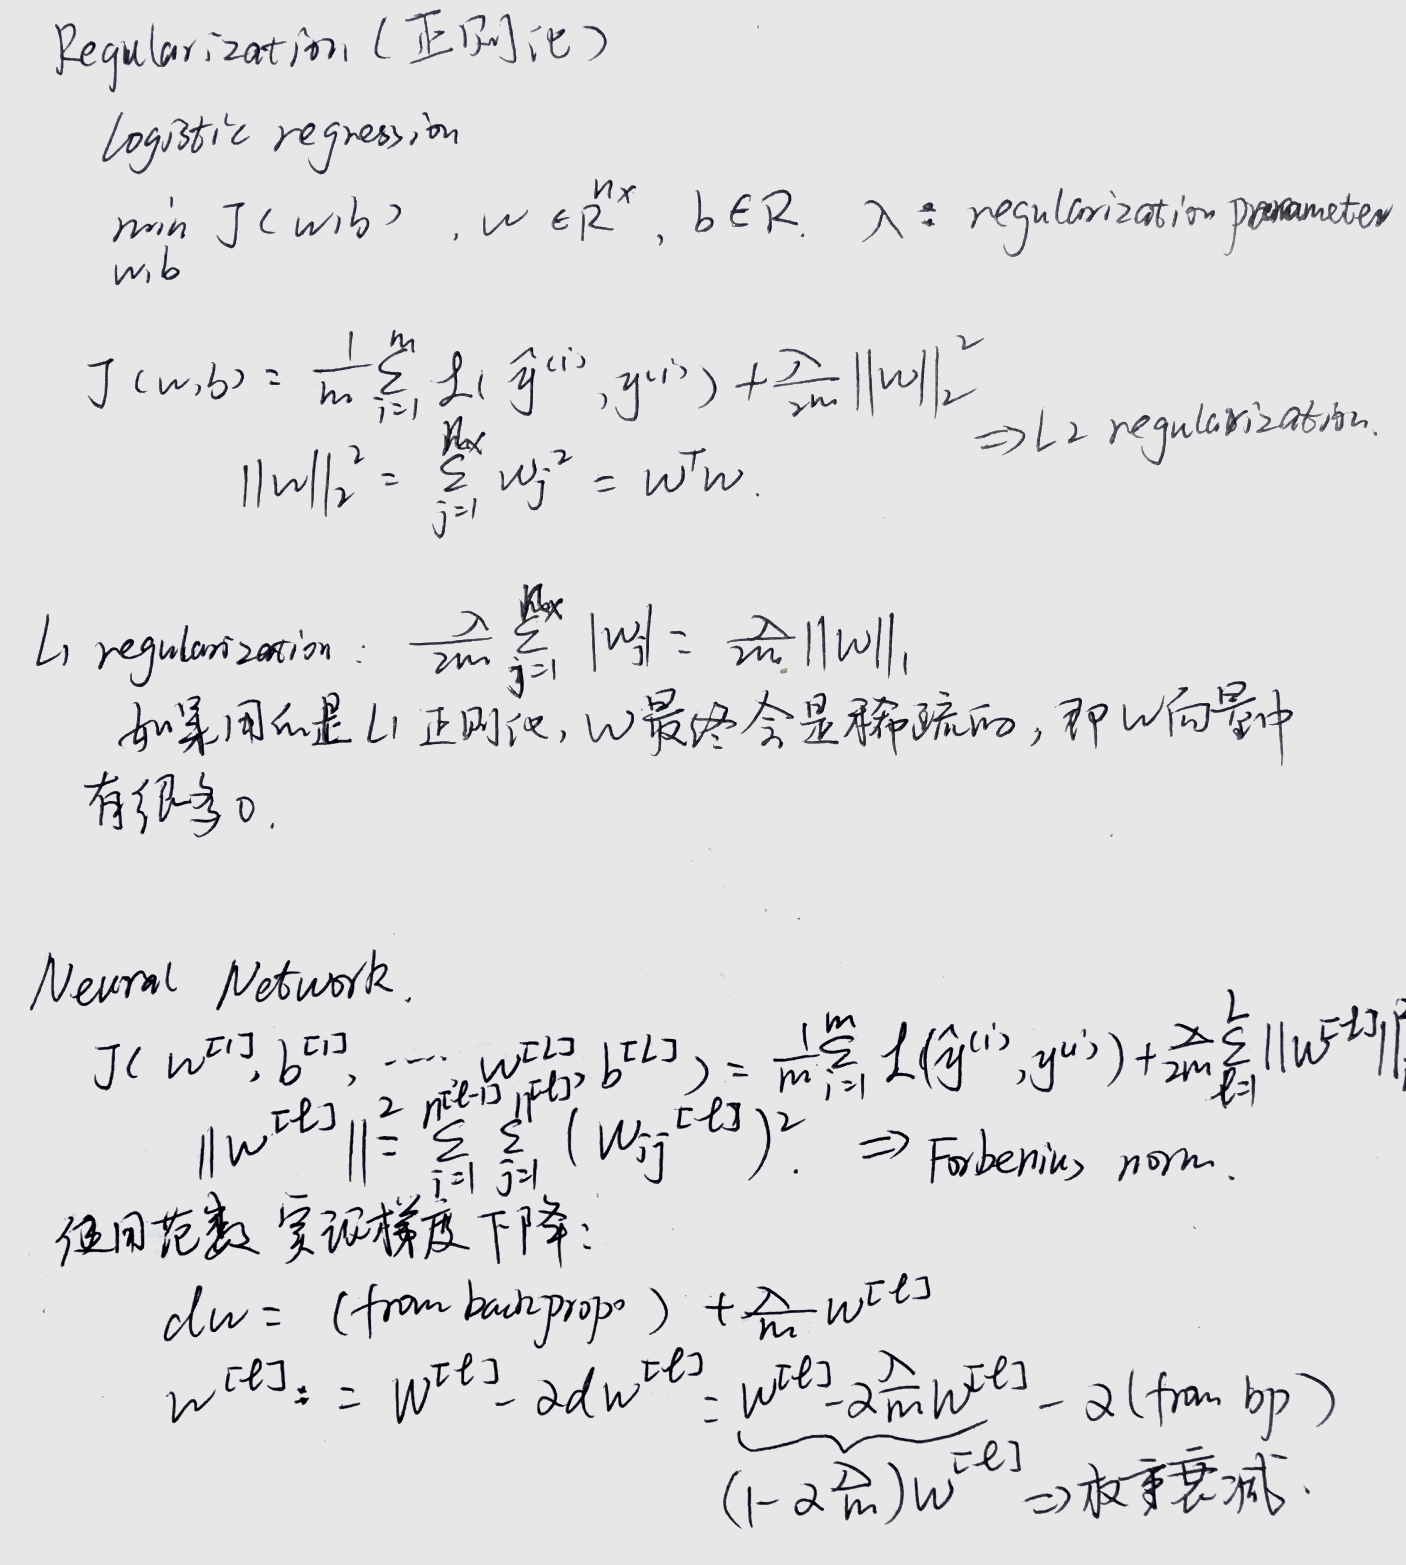 Regularization (正则化)
logistic regression
min J(w,b), w∈R^{n_x}, b∈R. λ: regularization parameter
w,b
J(w,b) = \frac{1}{m} \sum_{i=1}^{m} L(ŷ^{(i)}, y^{(i)}) + \frac{λ}{2m} ||w||_2^2
⇒ L2 regularization.
||w||_2^2 = \sum_{j=1}^{n_x} w_j^2 = w^T w.
L1 regularization: \frac{λ}{2m} \sum_{j=1}^{n_x} |w_j| = \frac{λ}{2m} ||w||_1
如果用的是L1正则化, w最终会是稀疏的, 即w向量中
有很多0.
Neural Network.
J(w^{[1]}, b^{[1]}, ···· w^{[L]}, b^{[L]}) = \frac{1}{m} \sum_{i=1}^{m} L(ŷ^{(i)}, y^{(i)}) + \frac{λ}{2m} \sum_{l=1}^{L} ||w^{[l]}||^2
||w^{[l]}||^2 = \sum_{i=1}^{n^{[l-1]}} \sum_{j=1}^{n^{[l]}} (w_{ij}^{[l]})^2. ⇒ Forbenius norm.
使用范数实现梯度下降:
dw = (from backprop) + \frac{λ}{m} w^{[l]}
w^{[l]} := w^{[l]} - αdw^{[l]} = w^{[l]} - α\frac{λ}{m}w^{[l]} - α(from bp)
(1-α\frac{λ}{m})w^{[l]} ⇒ 权重衰减.